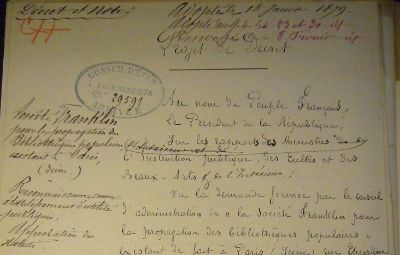 Direct et Note
Adopté le 15 Janvier 1879.
les 23 et 30 it
Renvoyé 8 Février it
Projet de Décret
CONSEIL D'ETAT
29591
ARRIVÉE
Société Franklin
pour la propagation des
Bibliothèques populaires,
existant à Paris,
(Seine)
Reconnaissance comme
établissement d'utilité
publique.
Approbation des
statuts
Au nom du Peuple Français,
Le Président de la République,
Sur les rapports des Ministres de
l'Instruction publique, des Cultes et des
Beaux-Arts & de l'Intérieur;
Vu la demande formée par le conseil
d'administration de "la Société Franklin pour
la propagation des bibliothèques populaires"
existant de fait à Paris (Seine) rue Christine